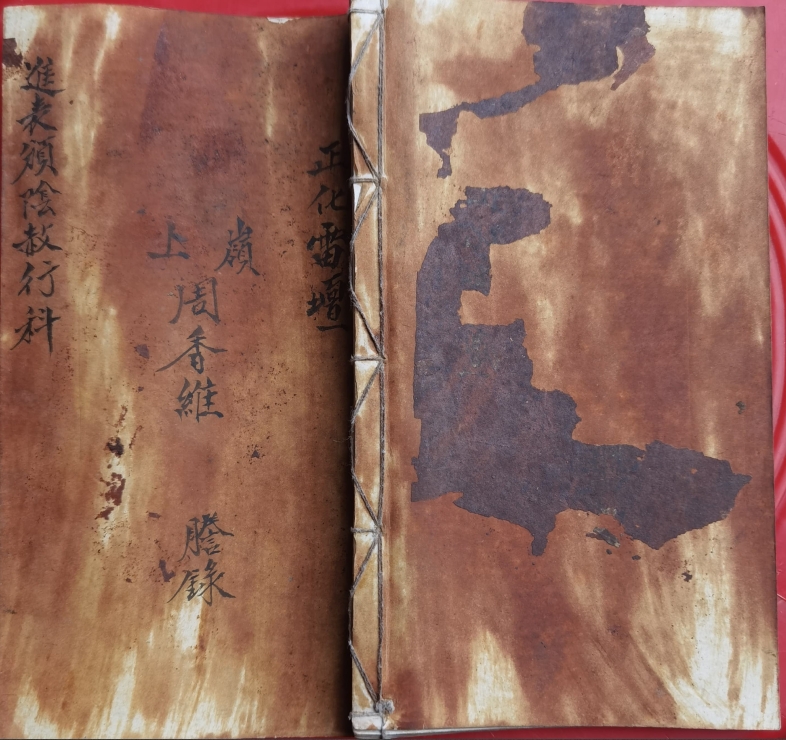 正化雷壇
嶺上
周香維
謄錄
進表頒陰赦行科